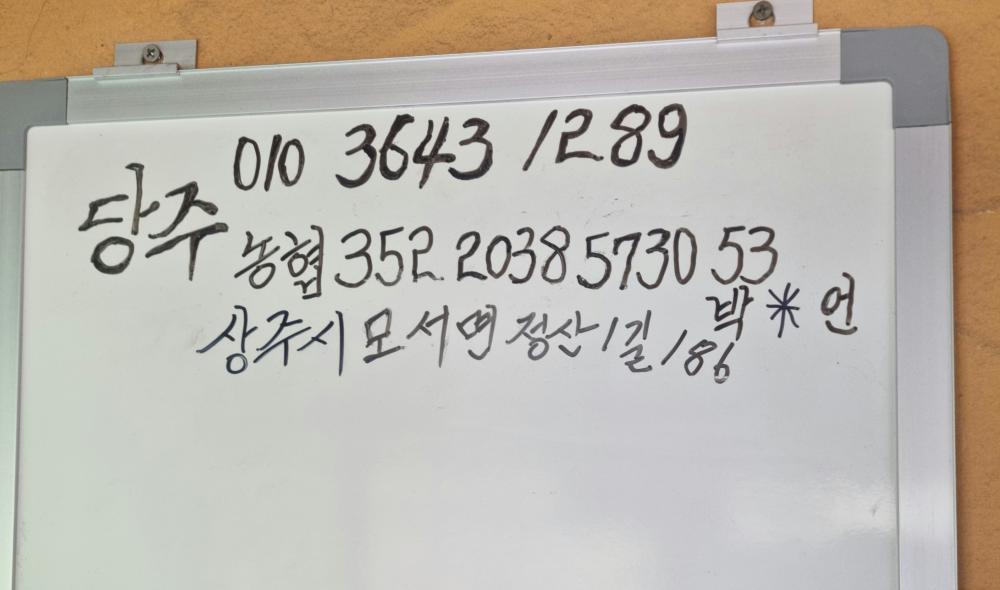 010 3643 1289
당주
농협 352 2038 5730 53
박*언
상주시 모서면 정산1길 186